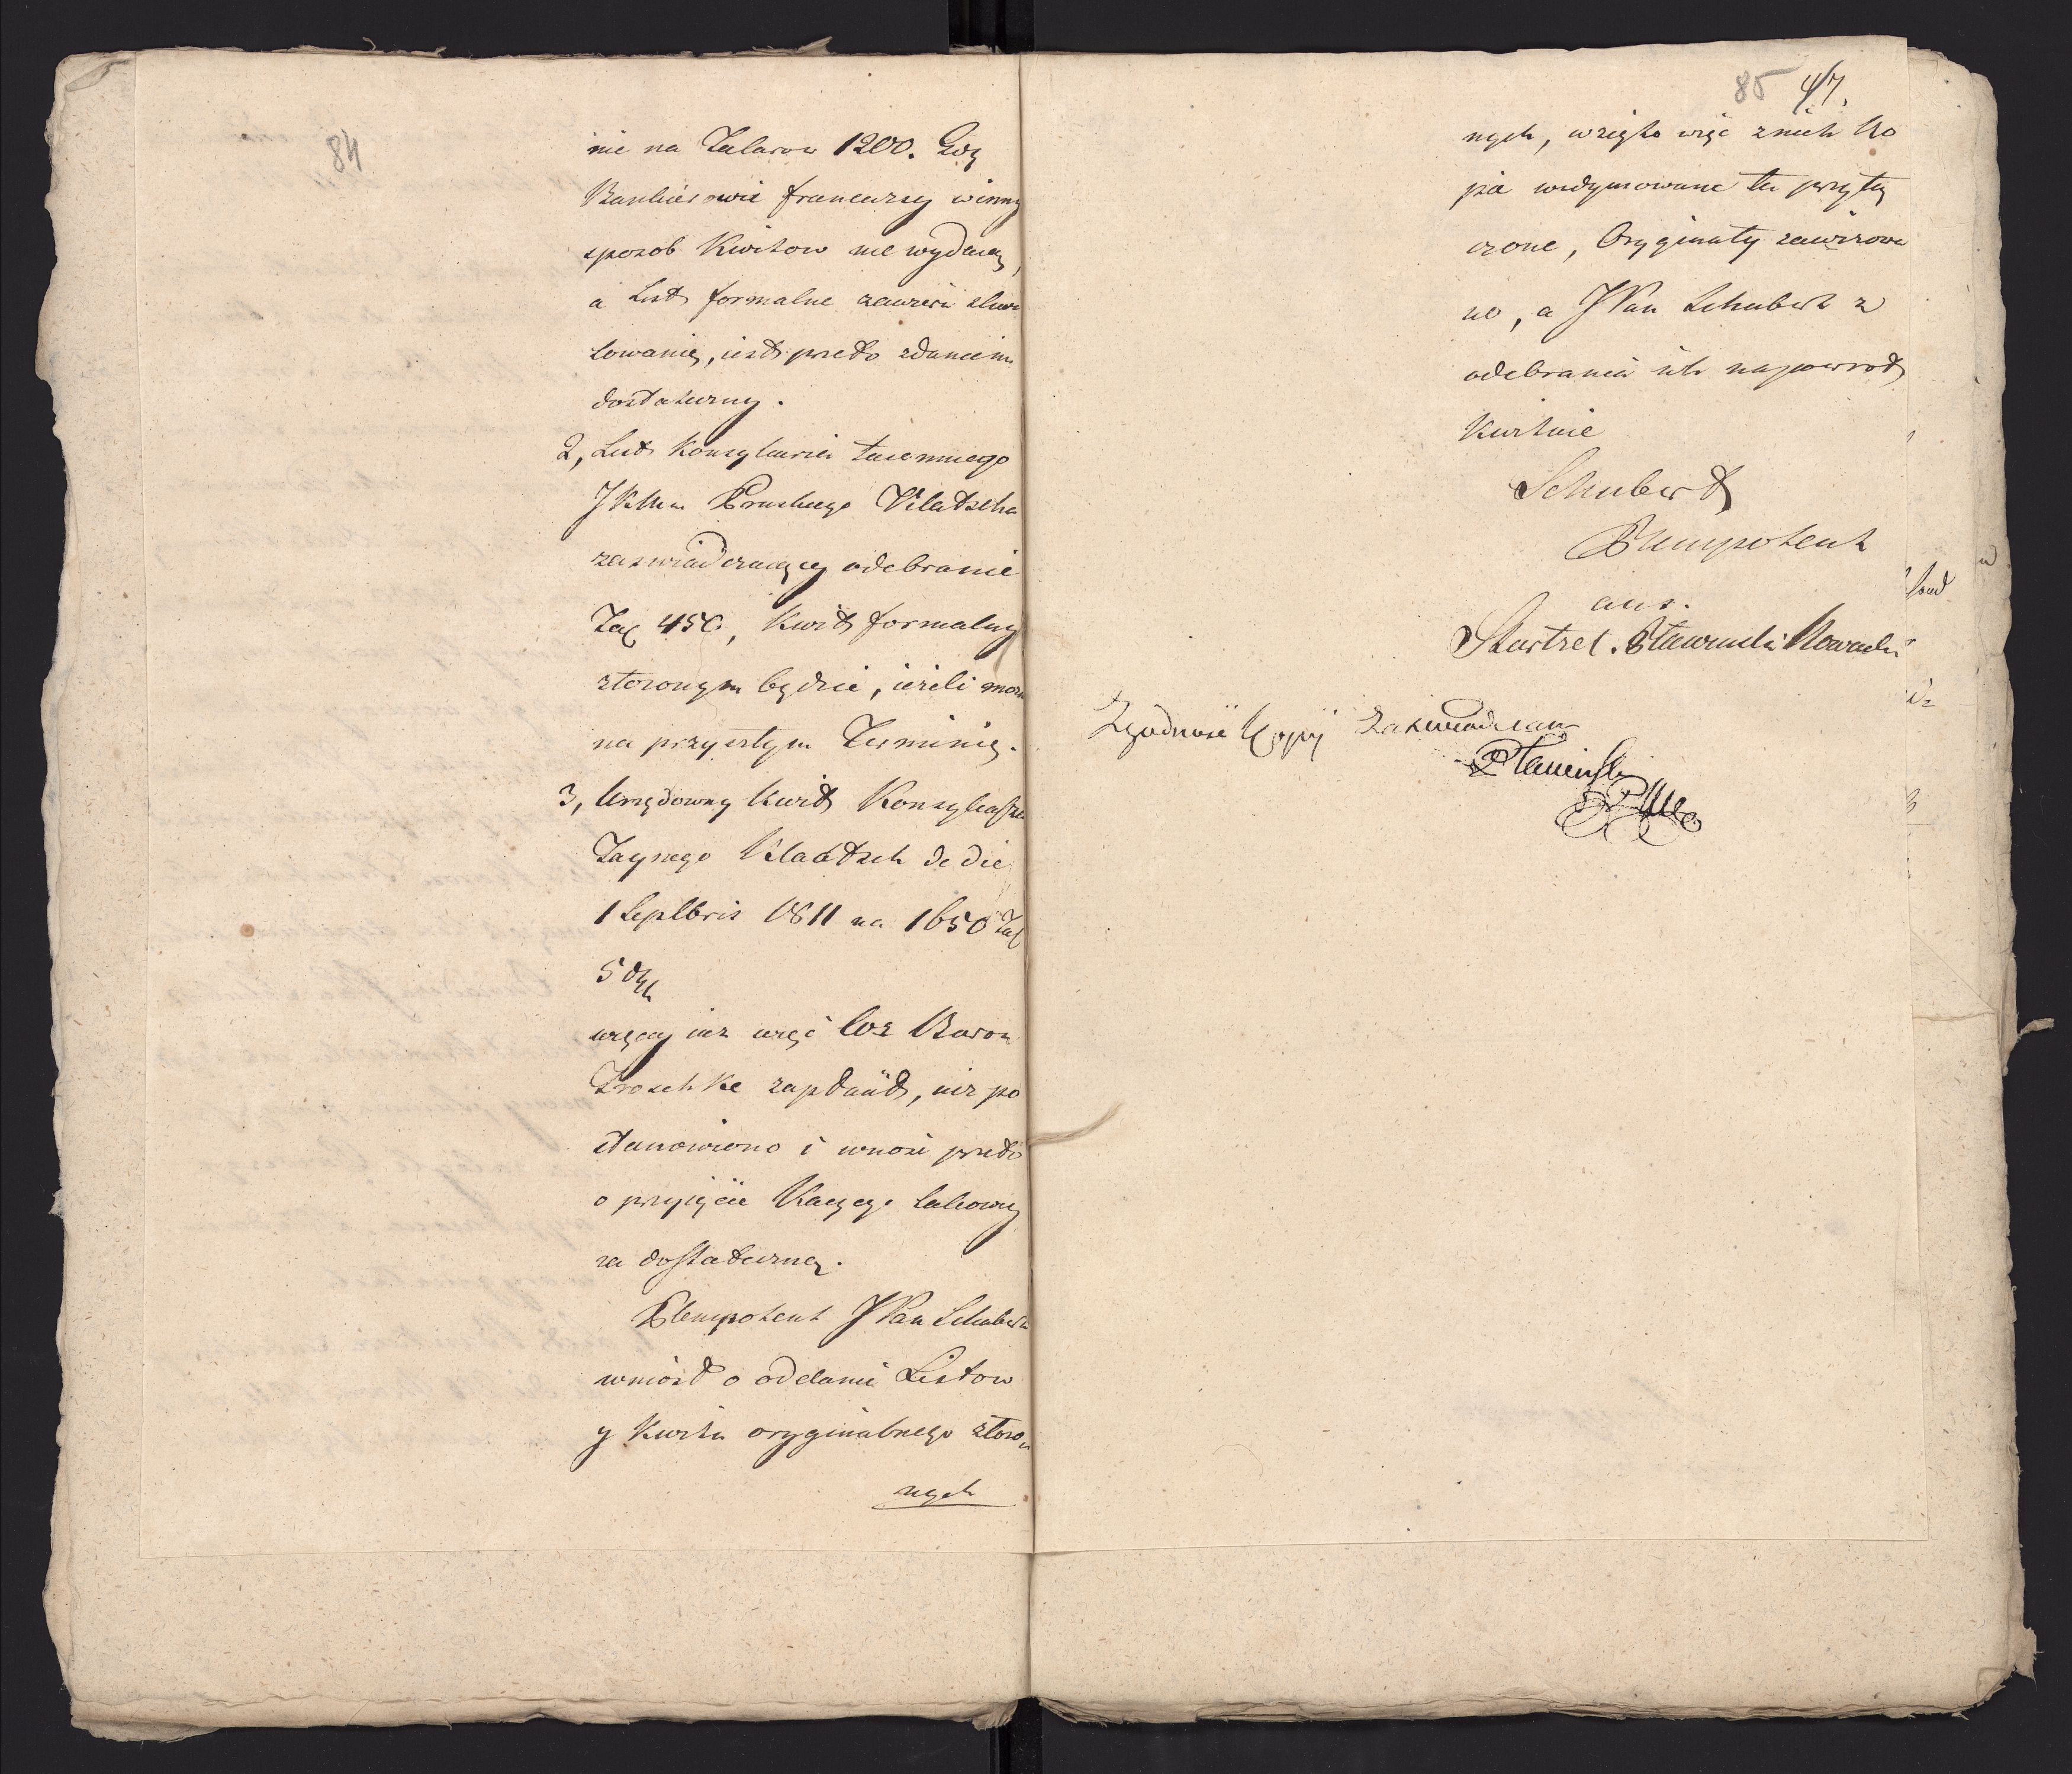 84
nie na Talarow 1200. Gdy
Bankierowie francuzcy winny
sposob Kwitow nie wydaią,
a List formalne zawiera
towanie, iest przeto zdaniem
dostateczny.
2, List Konsyliarza taiemnego
JKMci Pruskiego Klatscha
zaswiadczaiący odebranie
Tal 450, Kwit formalny
złożonym będzie, ieżeli moż
na przyszłym Terminie.
3, Urzędowny Kwit Konsyliarza
Taynego Klaatsch de die
1 Septbris 1811 na 1650 Tal
5 dgr
więcey iuż więc Ur Baron
Troschke zapłacił, niż po
stanowiono i wnosi przeto
o przyięcie Kaucyi
za dostateczną.
Plenipotent JPan Schubert
wniosł o oddanie Listow
y Kwitu oryginalnego złożo
nych
85 47.
nych, wzięto więc z nich Ko
pie widymowane tu przyłą
czone, Oryginały
no, a JPan Schubert z
odebrania ich napowrot
Kwituie
Schubert
Plenipotent
aus.
Stawinski Nowacki
Zgodność Kopij Zaświadczam
Stawinski